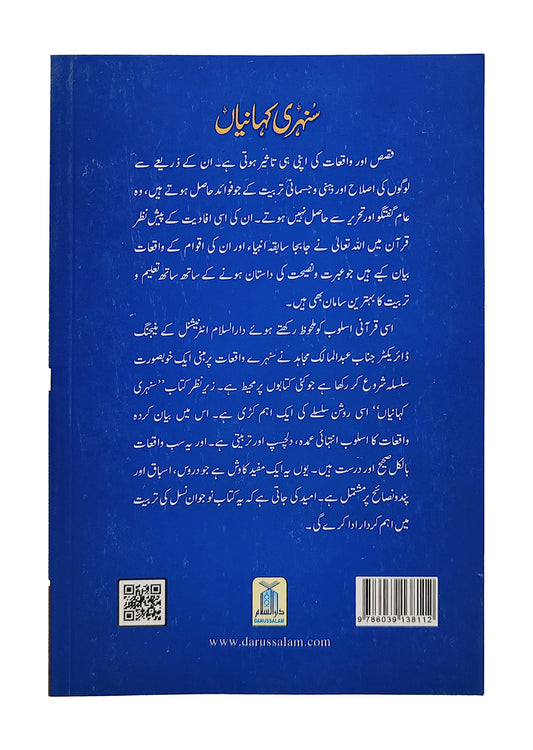 سُنہری کہانیاں
قصص اور واقعات کی اپنی ہی تاثیر ہوتی ہے۔ ان کے ذریعے سے
لوگوں کی اصلاح اور ذہنی و جسمانی تربیت کے جو فوائد حاصل ہوتے ہیں، وہ
عام گفتگو اور تحریر سے حاصل نہیں ہوتے۔ ان کی اسی افادیت کے پیش نظر
قرآن میں اللہ تعالیٰ نے جابجا سابقہ انبیاء اور ان کی اقوام کے واقعات
بیان کیے ہیں جو عبرت و نصیحت کی داستان ہونے کے ساتھ ساتھ تعلیم و
تربیت کا بہترین سامان بھی ہیں۔
اسی قرآنی اسلوب کو ملحوظ رکھتے ہوئے دارالسلام انٹرنیشنل کے مینیجنگ
ڈائریکٹر جناب عبدالمالک مجاہد نے سنہرے واقعات پر مبنی ایک خوبصورت
سلسلہ شروع کر رکھا ہے جو کئی کتابوں پر محیط ہے۔ زیر نظر کتاب "سنہری
کہانیاں" اسی روشن سلسلے کی ایک اہم کڑی ہے۔ اس میں بیان کردہ
واقعات کا اسلوب انتہائی عمدہ، دلچسپ اور تربیتی ہے۔ اور یہ سب واقعات
بالکل صحیح اور درست ہیں۔ یوں یہ ایک مفید کاوش ہے جو دروس، اسباق اور
پند و نصائح پر مشتمل ہے۔ امید کی جاتی ہے کہ یہ کتاب نوجوان نسل کی تربیت
میں اہم کردار ادا کرے گی۔
دارالسلام
DARUSSALAM
9 786039 138112
www.darussalam.com